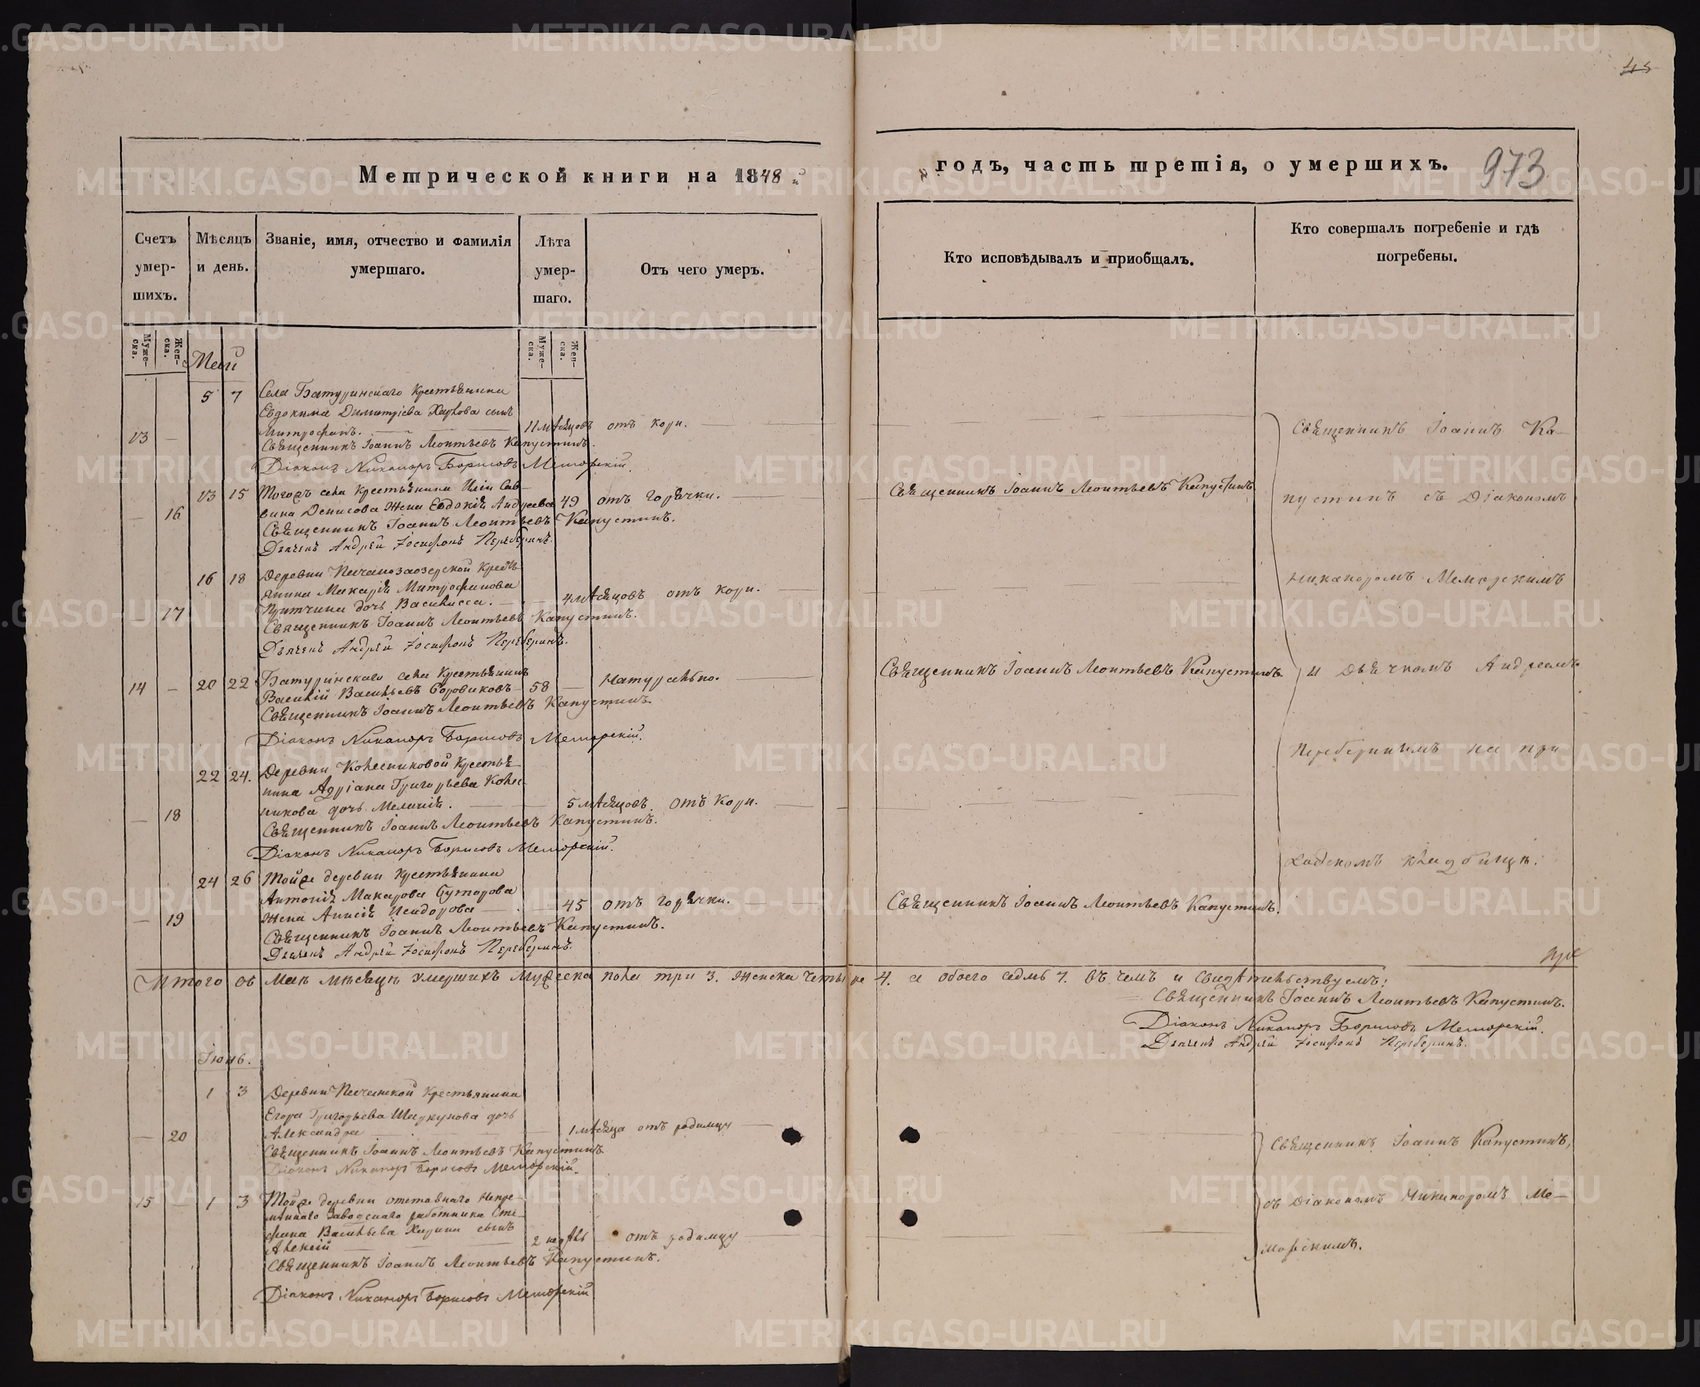 45
Метрической книги на 1848 й
годъ, часть третія, о умершихъ. 973
Счетъ умер-шихъ.
Мѣсяцъ и день.
Званіе, имя, отчество и фамилія умершаго.
Лѣта умер-шаго.
Отъ чего умеръ.
Кто исповѣдывалъ и приобщалъ.
Кто совершалъ погребеніе и гдѣ погребены.
Муже-ска. Жен-ска.
Муже-ска. Жен-ска.
Маій
5 7 Села Батуринскаго Крестьянина
Евдокима Димитріева сынъ
13 — Митрофанъ. 11 мѣсяцовъ отъ кори.
Священникъ Іоаннъ Леонтьевъ Капустинъ.
Діаконъ Никаноръ Борисовъ Меморскій.
13 15 Тогожъ села Крестьянина Иліи Сав-
— 16 вина Денисова жена Евдокія Андреева 49 отъ горячки. Священникъ Іоаннъ Леонтьевъ Капустинъ
Священникъ Іоаннъ Леонтьевъ Капустинъ.
Дьячекъ Андрей Іосифовъ Переберинъ.
16 18 Деревни Песчанозаозерской Крест-
янина Макарія Митрофанова
— 17 дочь Василисса. 4 мѣсяцовъ отъ кори.
Священникъ Іоаннъ Леонтьевъ Капустинъ.
Дьячекъ Андрей Іосифовъ Переберинъ.
20 22 Батуринскаго села Крестьянинъ
14 — Василій Васильевъ Боровиковъ 58 — натурально. Священникъ Іоаннъ Леонтьевъ Капустинъ
Священникъ Іоаннъ Леонтьевъ Капустинъ.
Діаконъ Никаноръ Борисовъ Меморскій.
22 24. Деревни Колесниковой Крестья-
нина Адріана Григорьева Колес-
— 18 никова дочь Меланія. 5 мѣсяцовъ. отъ кори.
Священникъ Іоаннъ Леонтьевъ Капустинъ.
Діаконъ Никаноръ Борисовъ Меморскій.
24 26 Тойже деревни Крестьянина
Антонія Макарова Суторова
— 19 жена Анисія Исидорова 45 отъ горячки. Священникъ Іоаннъ Леонтьевъ Капустинъ.
Священникъ Іоаннъ Леонтьевъ Капустинъ.
Дьячекъ Андрей Іосифовъ Переберинъ.
Священникъ Іоаннъ Ка-
пустинъ съ Діакономъ
Никаноромъ Меморскимъ
и Дьячкомъ Андреемъ
Переберинымъ на при
ходскомъ кладбищѣ.
Итого въ Маѣ мѣсяцѣ умершихъ мужеска пола три 3. женска четыре 4. а обоего седмь 7. въ чемъ и свидѣтельствуемъ:
Священникъ Іоаннъ Леонтьевъ Капустинъ.
Діаконъ Никаноръ Борисовъ Меморскій.
Дьячекъ Андрей Іосифовъ Переберинъ.
Іюнь.
1 3 Деревни Песчанской Крестьянина
Егора Григорьева дочь
— 20 Александра 1 мѣсяца отъ родимцу
Священникъ Іоаннъ Леонтьевъ Капустинъ
Діаконъ Никаноръ Борисовъ Меморскій.
15 — 1 3 Тойже деревни отставнаго Непре-
мѣннаго Заводскаго работника Сте-
фана Васильева сынъ
Алексій 2 недѣль отъ родимцу
Священникъ Іоаннъ Леонтьевъ Капустинъ.
Діаконъ Никаноръ Борисовъ Меморскій
Священникъ Іоаннъ Капустинъ,
съ Діакономъ Никаноромъ Ме-
морскимъ.
METRIKI.GASO-URAL.RU